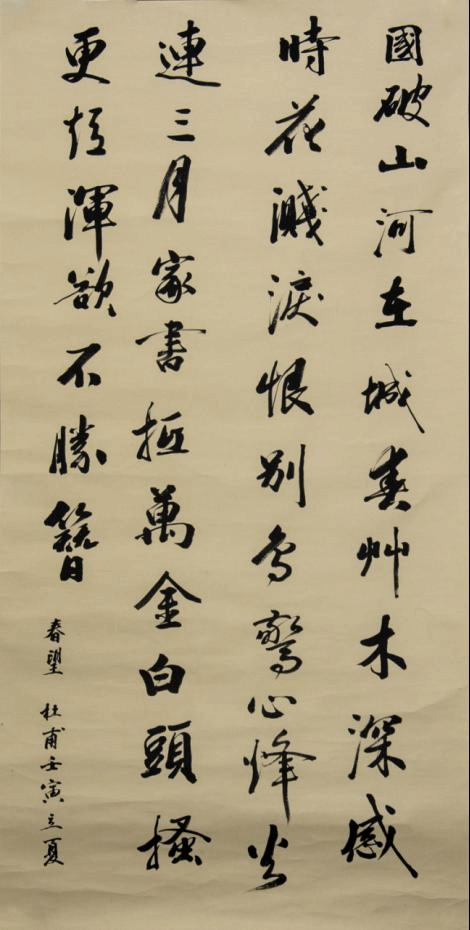 國破山河在城春艸木深感
時花濺淚恨別鳥驚心烽火
連三月家書抵萬金白頭搔
更短渾欲不勝簪
春望 杜甫 壬寅立夏